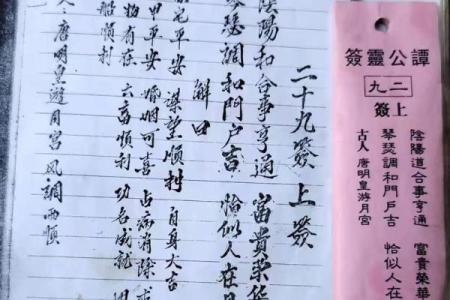 譚公靈簽
二九
上簽
陰陽道合事亨通 富貴榮華
琴瑟調和門戶吉 恰似人在
古人 唐明皇游月宮
二十九簽 上簽
陰陽和合事亨通 富貴榮華
琴瑟調和門戶吉 恰似人在
解曰
宅平安 謀望順利 自身大吉
甲平安 婚姻可喜 占病消除
物有在 六畜順利 功名成就
船順利
人 唐明皇遊月宮 風調雨順